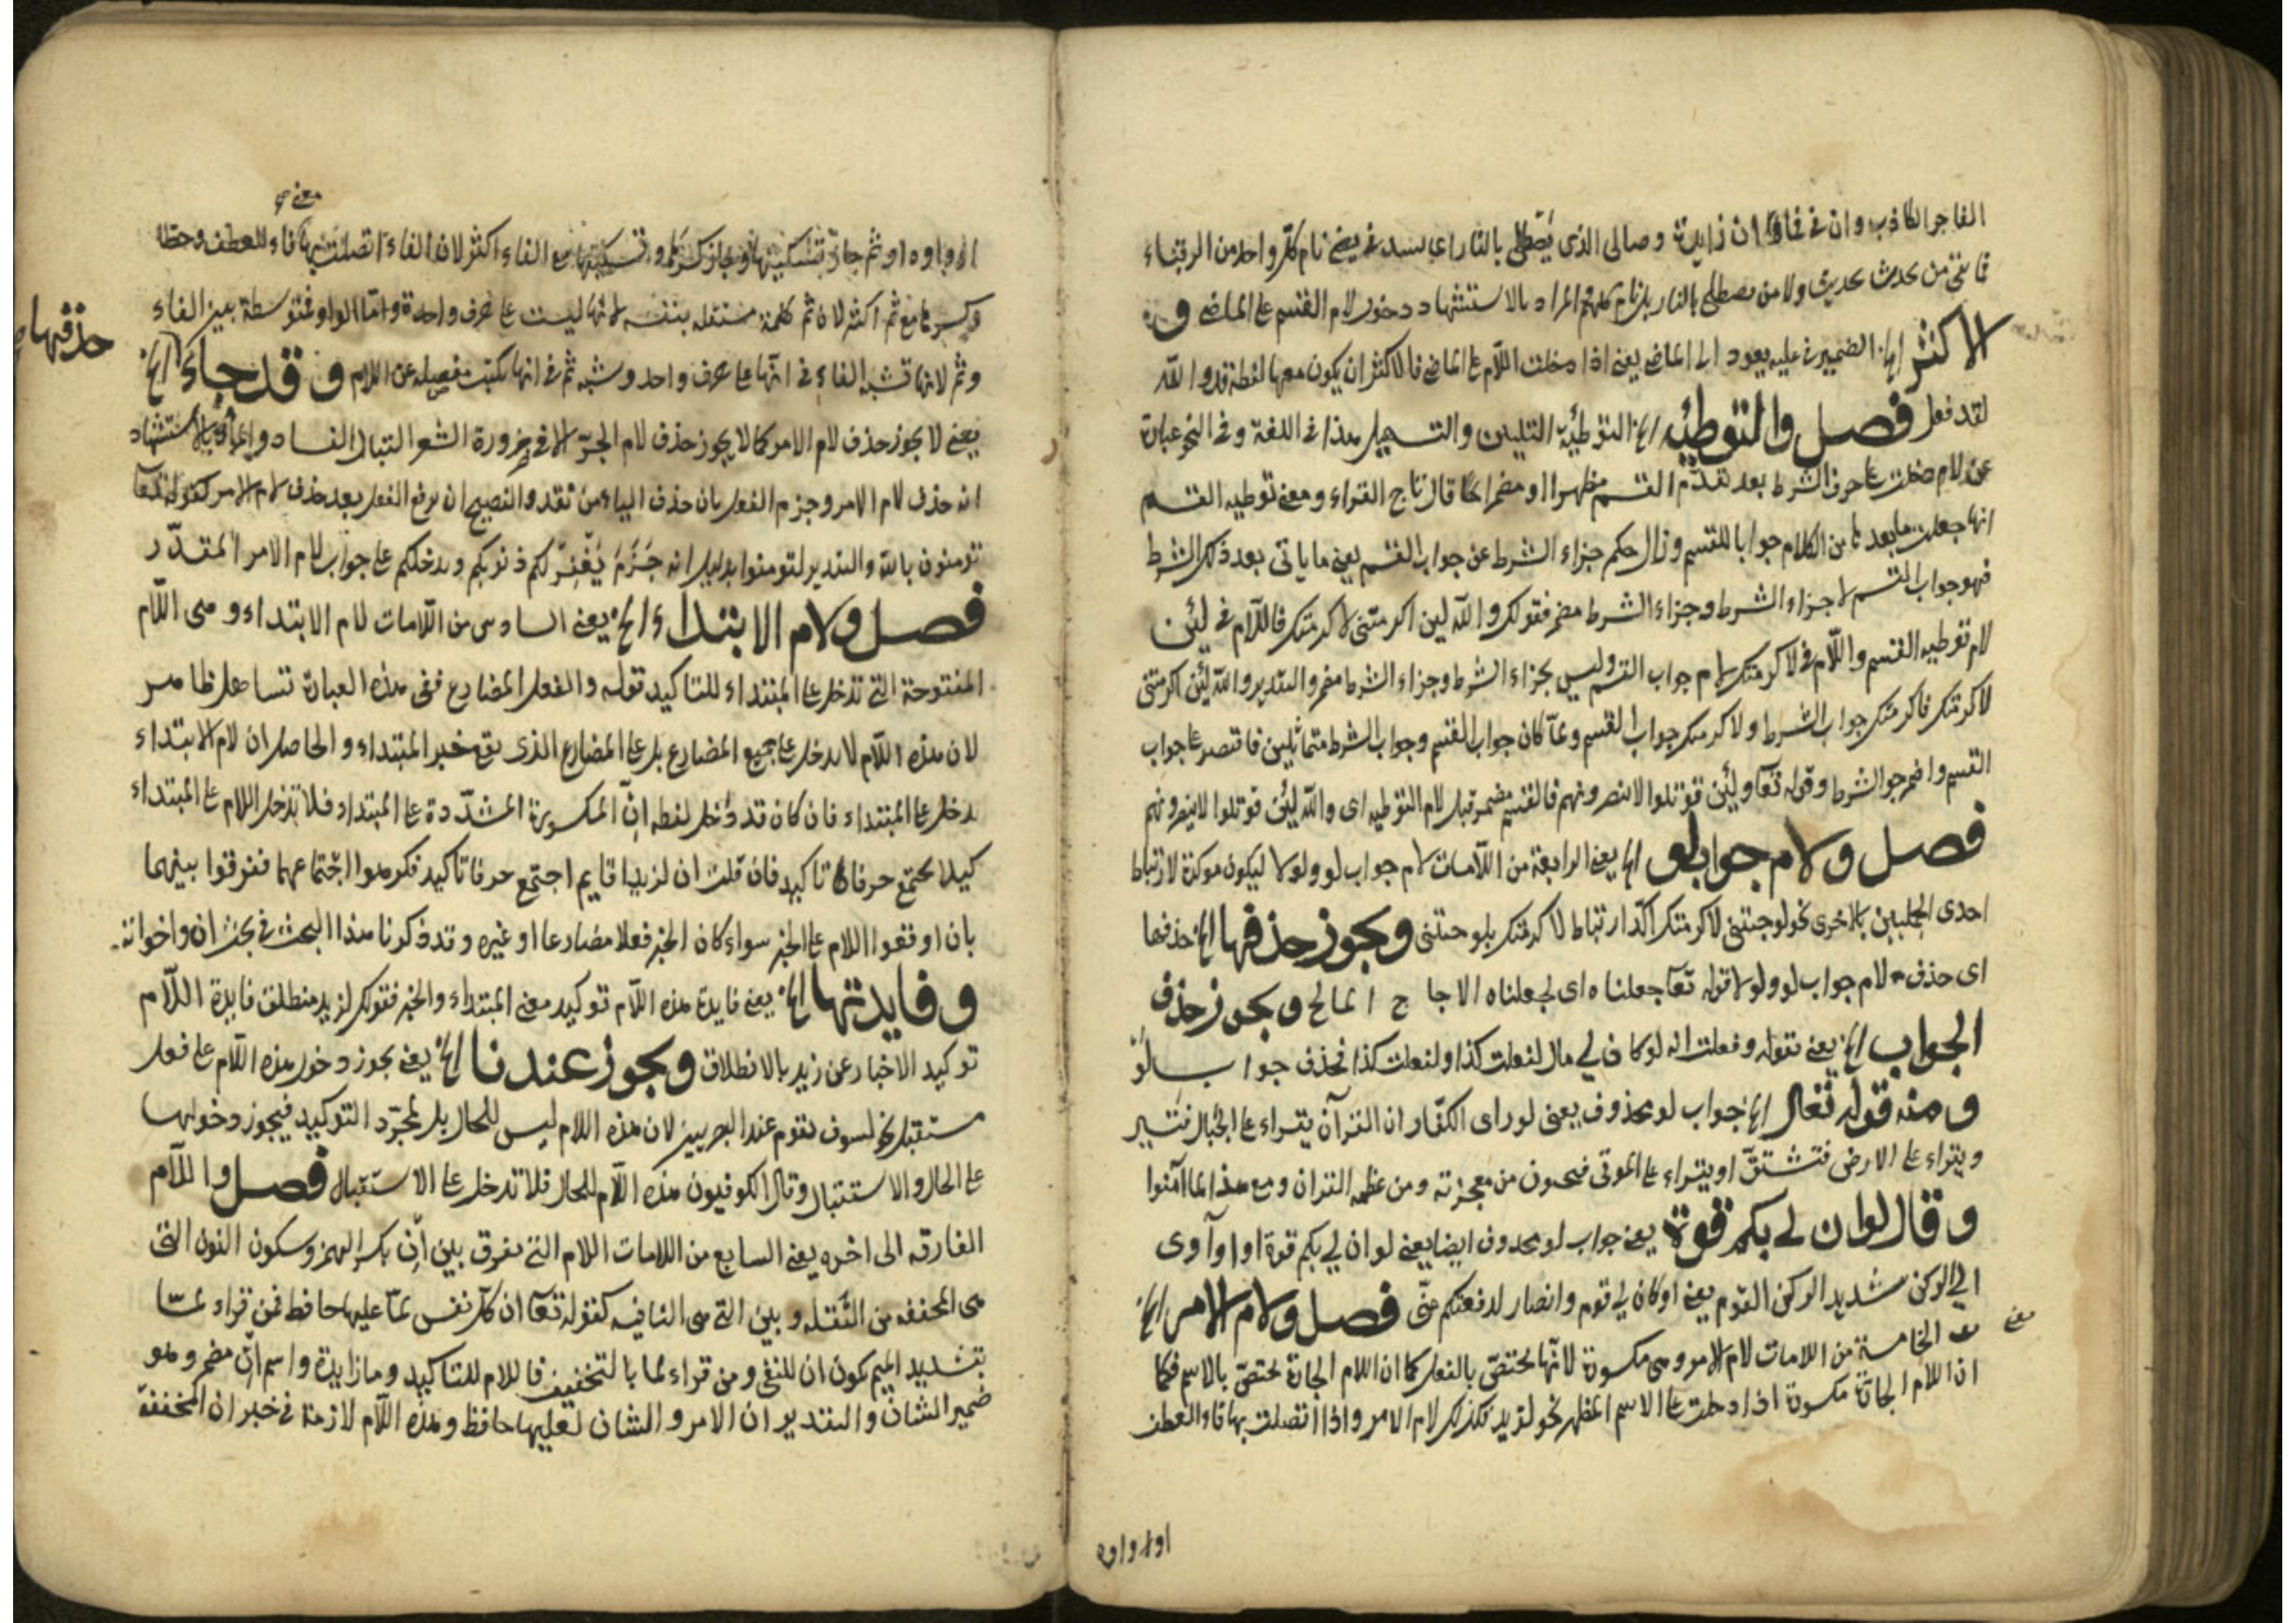 الفاجر الكاذب وان فى فما ان زايدة وصالى الذى يصطلى بالنار اى يستدفى يعنى نام كلّ واحد من الرقباء
فما بقى من محدث يحدث ولا من يصطلى بالنار بل نام كلهم والمراد بالاستشهاد دخول لام القسم على الماضى و
الاكثر الخ الضمير فى عليه يعود الى الماضى يعنى اذا دخلت اللّام على الماضى فالاكثر ان يكون معها لفظة قد والله
لقد فعل فصل والتوطئة الخ التوطئة التليين والتسهيل هذا فى اللغة وفى النحو عبارة
عن لام دخلت على حرف الشرط بعد تقدّم القسم مظهرا او مضمرا كما قال تاج القراء ومعنى توطيه القسم
انها جعلت ما بعدها من الكلام جوابا للقسم وزال حكم جزاء الشرط عن جواب القسم يعنى ما ياتى بعد ذلك الشرط
فهو جواب القسم لا جزاء الشرط وجزاء الشرط مضمر فقولك والله لين اكرمتنى لاكرمتك فاللّام فى لئن
لام توطيه القسم واللّام فى لاكرمتك لام جواب القسم وليس بجزاء الشرط وجزاء الشرط مضمر والتقدير والله لئن اكرمتنى
لاكرمتك فاكرمتك جواب الشرط ولاكرمتك جواب القسم ولمّا كان جواب القسم وجواب الشرط متماثلين فاقتصر على جواب
القسم واضمر جوا الشرط وقوله تعآ ولئن قوتلوا لا ينصرونهم فالقسم مضمر قبل لام التوطيه اى والله لئن قوتلوا لا ينصرونهم
فصل ولام جواب لو الخ يعنى الرابعة من اللّامات لام جواب لو ولولا ليكون موكدة لارتباط
احدى الجملتين بالاخرى نحو لو جئتنى لاكرمتك اكّد ارتباط لاكرمتك بلو جئتنى ويجوز حذفها الخ حذفها
اى حذف لام جواب لو ولولا قوله تعآ جعلناه اى لجعلناه الاجاج المالح ويجوز حذف
الجواب الخ يعنى بقوله وفعلت انه لو كان لى مال لفعلت كذا ولفعلت كذا فحذف جواب لو
ومنه قوله تعال الخ جواب لو محذوف يعنى لو راى الكفّار ان القرآن يقراء على الجبال فتسير
ويقراء على الارض فتشتقّ او يقراء على الموتى فيحيون من معجزته ومن عظمه القران ومع هذا لما آمنوا
وقال لو ان لى بكم قوة يعنى جواب لو محدوف ايضا يعنى لو ان لى بكم قوة او اوآوى
الى ركن شديد الركن القوم يعنى او كان لى قوم وانصار لدفعتكم منّى فصل ولام الامر الخ
يعنى
الخامسة من اللامات لام الامر وهى مكسورة لانّها تختصّ بالفعل كما ان اللام الجارة تختصّ بالاسم فكما
ان اللام الجارة مكسورة اذا دخلت على الاسم المظهر نحو لزيد فكذلك لام الامر واذا اتصلت بها فاء العطف
او او واوه
معنى
او واوه او ثم جاز تسكينها وجاز كسرها وتسكينها مع الفاء اكثر لان الفاء اتصلت بها فاء للعطف وخطا
وكسرها مع ثم اكثر لان ثم كلمة مستقله بنفسه لانها ليست على حرف واحدة وامّا الواو فمتوسطة بين الفاء
وثم لانها تشبه الفاء فى انّها على حرف واحد وشبه ثم فى انها تكتب مفصله عن اللام وقد جاء الخ
حذفها
يعنى لا يجوز حذف لام الامر كما لا يجوز حذف لام الجرّ الا فى ضرورة الشعر التبال الفساد والمراد بالاستشهاد
انه حذف لام الامر وجزم الفعل بان حذف الياء من تفد والفصيح ان يرفع الفعل بعد حذف لام الامر كقوله تعآ
تومنون بالله والتقدير لتومنوا بدليل انه جزم يغفر لكم ذنوبكم ويدخلكم على جواب لام الامر المقدّر
فصل ولام الابتداء الخ يعنى السادس من اللّامات لام الابتداء وهى اللّام
المفتوحة التى تدخل على المبتداء للتاكيد قوله والفعل المضارع ففى هذه العبارة تساهل ظاهر
لان هذه اللّام لا يدخل على جميع المضارع بل على المضارع الذى يقع خبر المبتداء والحاصل ان لام الابتداء
يدخل على المبتداء فان كان قد دخل لفظه انّ المكسورة المشدّدة على المبتداء فلا تدخل اللام على المبتداء
كيلا يجتمع حرفان تاكيد فان قلت ان لزيدا قايم اجتمع حرفا تاكيد فكرهوا اجتماعهما ففرقوا بينهما
بان اوقعوا اللام على الخبر سواء كان الخبر فعلا مضارعا او غيره وقد ذكرنا هذا البحث فى بحث ان واخواته
وفايدتها الخ يعنى فايدة هذه اللّام توكيد معنى المبتداء والخبر فقولك لزيد منطلق فايدة اللّام
توكيد الاخبار عن زيد بالانطلاق ويجوز عندنا الخ يعنى يجوز دخول هذه اللّام على فعل
مستقبل نحو لسوف يقوم عند البصريين لان هذه اللام ليس للحال بل لمجرّد التوكيد فيجوز دخولها
على الحال والاستقبال وقال الكوفيون هذه اللّام للحال فلا تدخل على الاستقبال فصل واللّام
الفارقه الى اخره يعنى السابع من اللامات اللام التى يفرق بين ان بكسر الهمزة وسكون النون التى
هى المخففه من الثقله وبين التى هى النافيه كقوله تعآ ان كلّ نفس لمّا عليها حافظ فمن قراء لمّا
بتشديد الميم يكون ان للنفى ومن قراء لما بالتخفيف فاللام للتاكيد وما زايدة واسم ان مضمر وهو
ضمير الشان والتقدير ان الامر والشان لعليها حافظ وهذه اللّام لازمة فى خبر ان المخففة